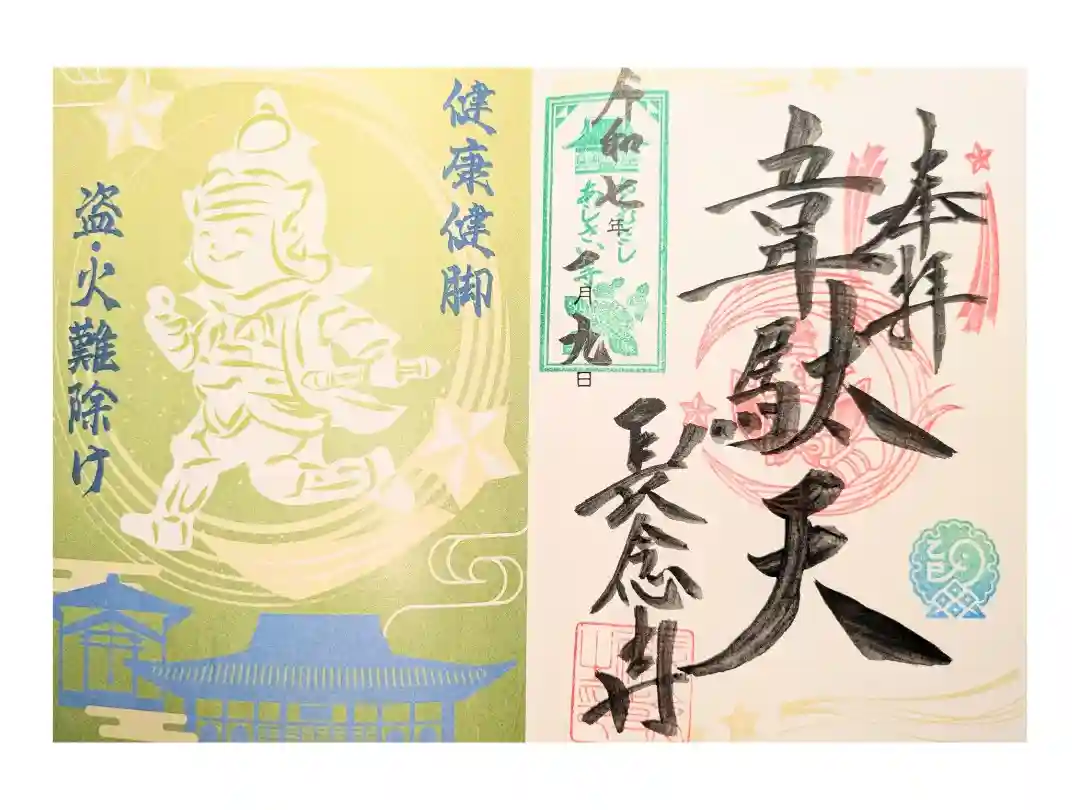 奉拝
韋駄天
令和七年 月九日
あじさい寺
長念寺
乙巳
健康健脚
盗・火難除け